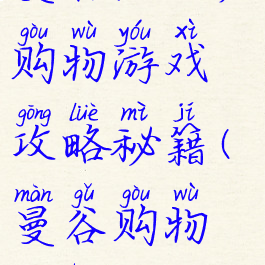 gòu wù yóu xì
购物游戏
gōng lüè mì jí
攻略秘籍(
màn gǔ gòu wù
曼谷购物